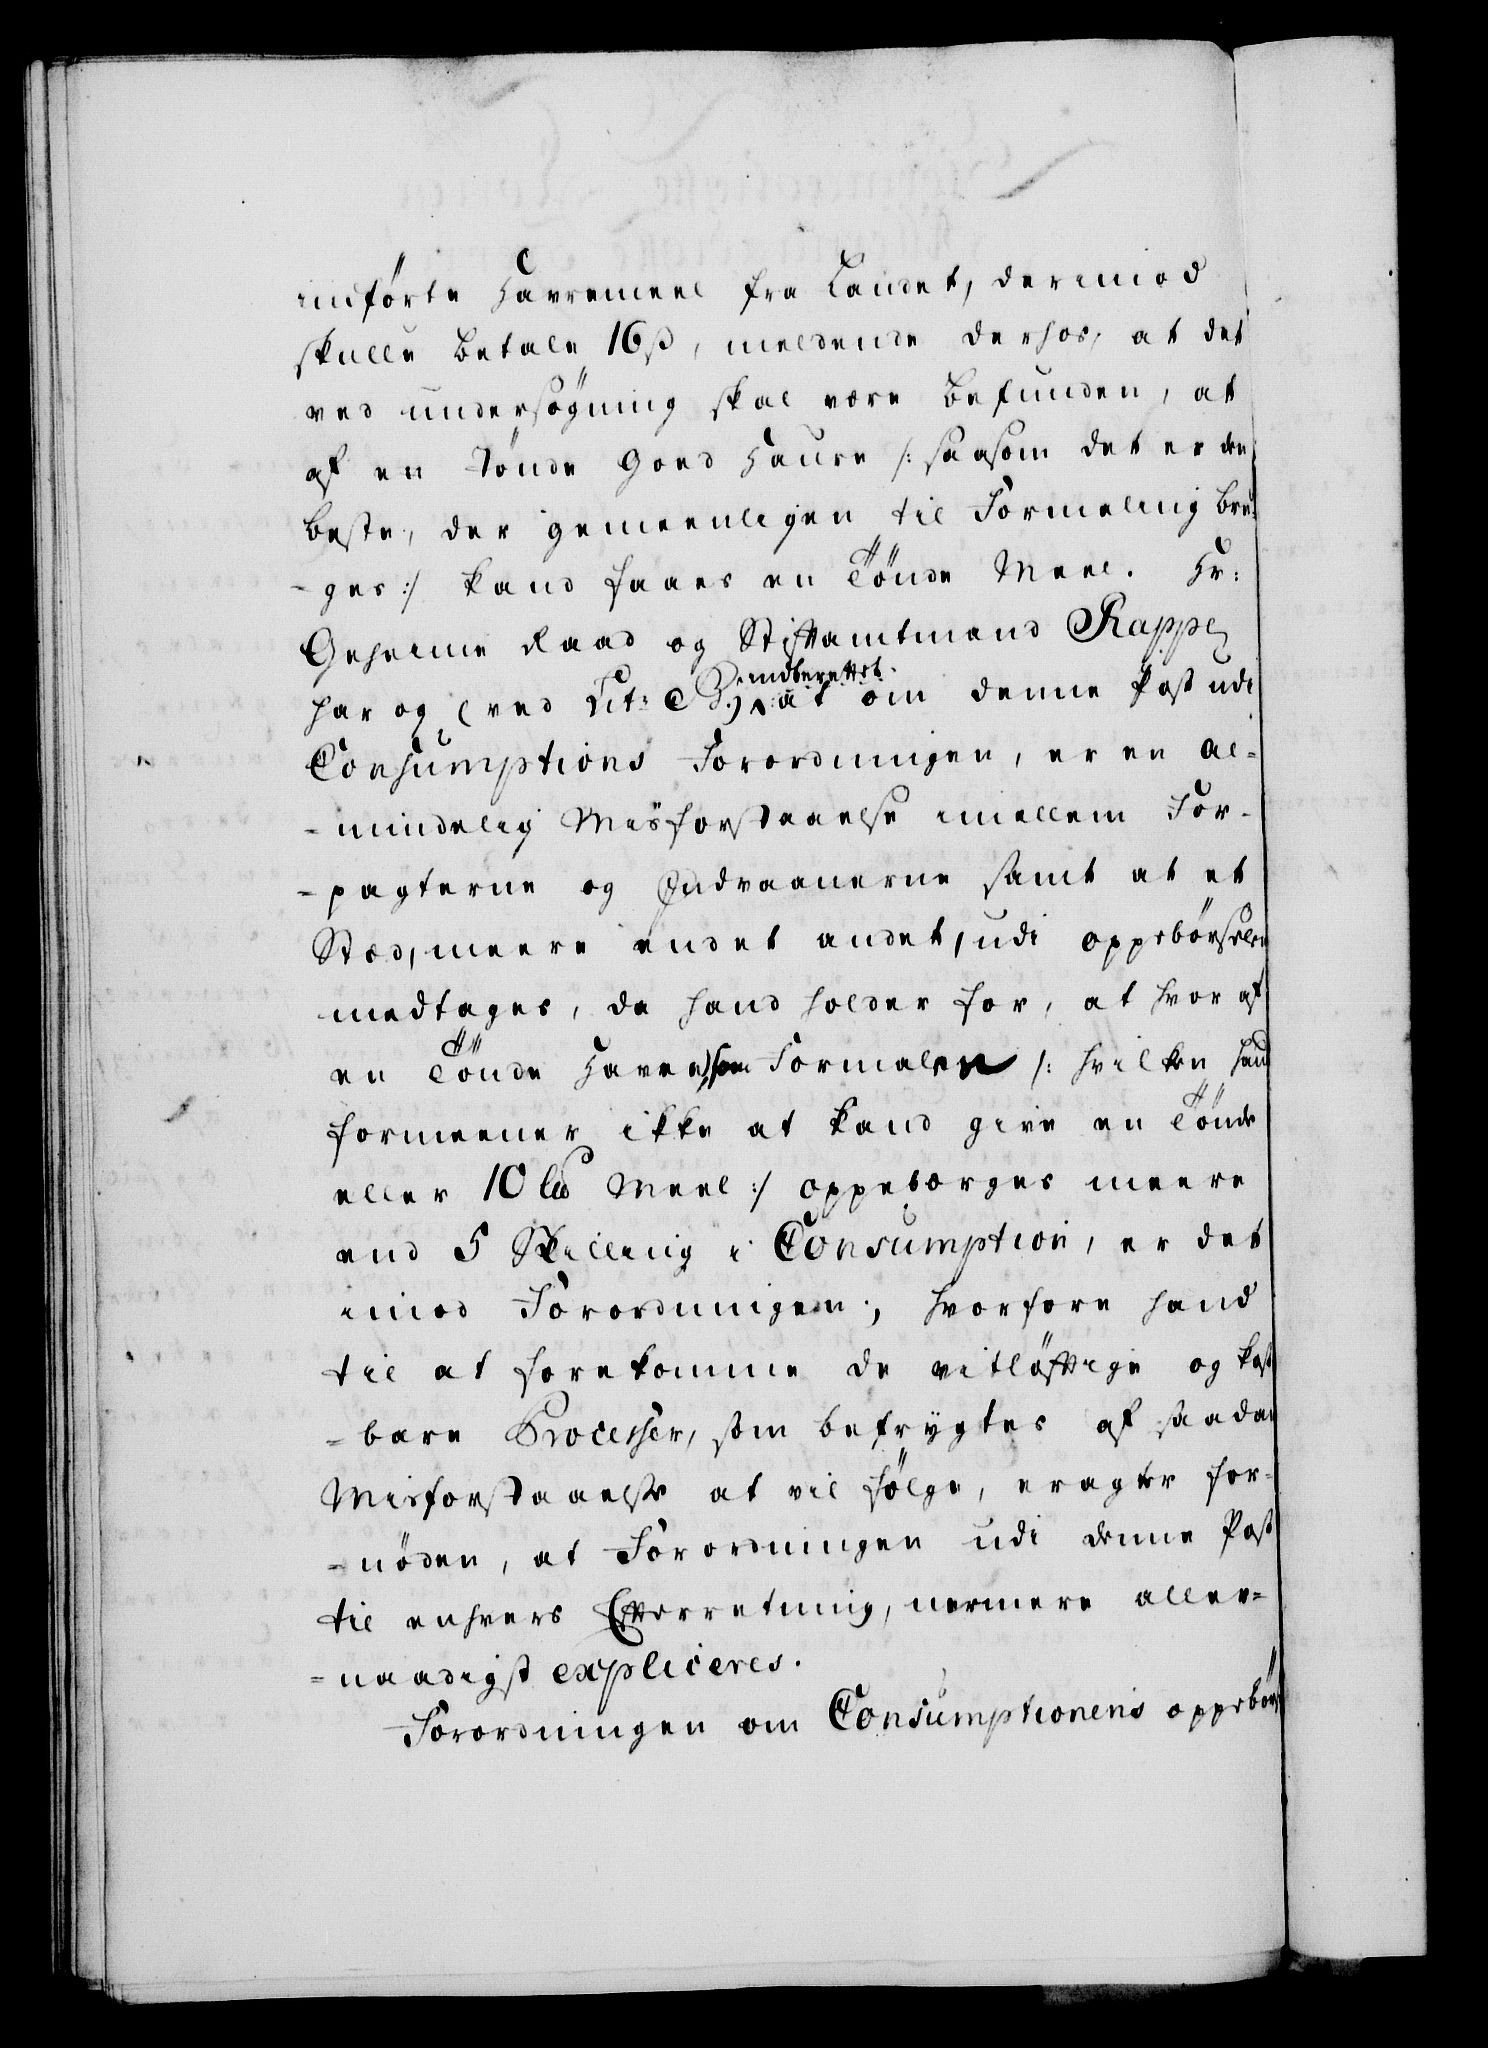 indførte Havremeel fra Landet, derimod
skulle betale 16 ß, meldende derhos, at det
ved undersögning skal være befunden, at
af en Tönde Goed Haure /: saasom det er den
beste, der gemeenligen til Formaling bru-
-ges :/ kand faaes en Tönde Meel. Hr:
Geheime Raad og Stiftamtmand Rappe
har og (ved Lit: B.) indberettet at om denne Post udi
Consumptions Forordningen, er en al-
-mindelig Misforstaaelse imellem For-
-pagterne og Indvaanerne samt at et
Stæd, meere endet andet, udi oppebörselen
medtages, da hand holder for, at hvor af
en Tönde Havre, som Formalen /: hvilken hand
formeener ikke at kand give en Tönde
eller 10 l℔ Meel :/ oppebørges meere
end 5 Skilling i Consumption, er det
imod Forordningen; hvorfore hand
til at forekomme de vitlöftige og kost
-bare Processer, som befrygtes af saadan
Misforstaaelse at vil fölge, eragter for-
-nöden, at Forordningen udi denne Post
til enhvers Efterretning, nermere aller-
-naadigst expliceres.
Forordningen om Consumptionens oppebörs